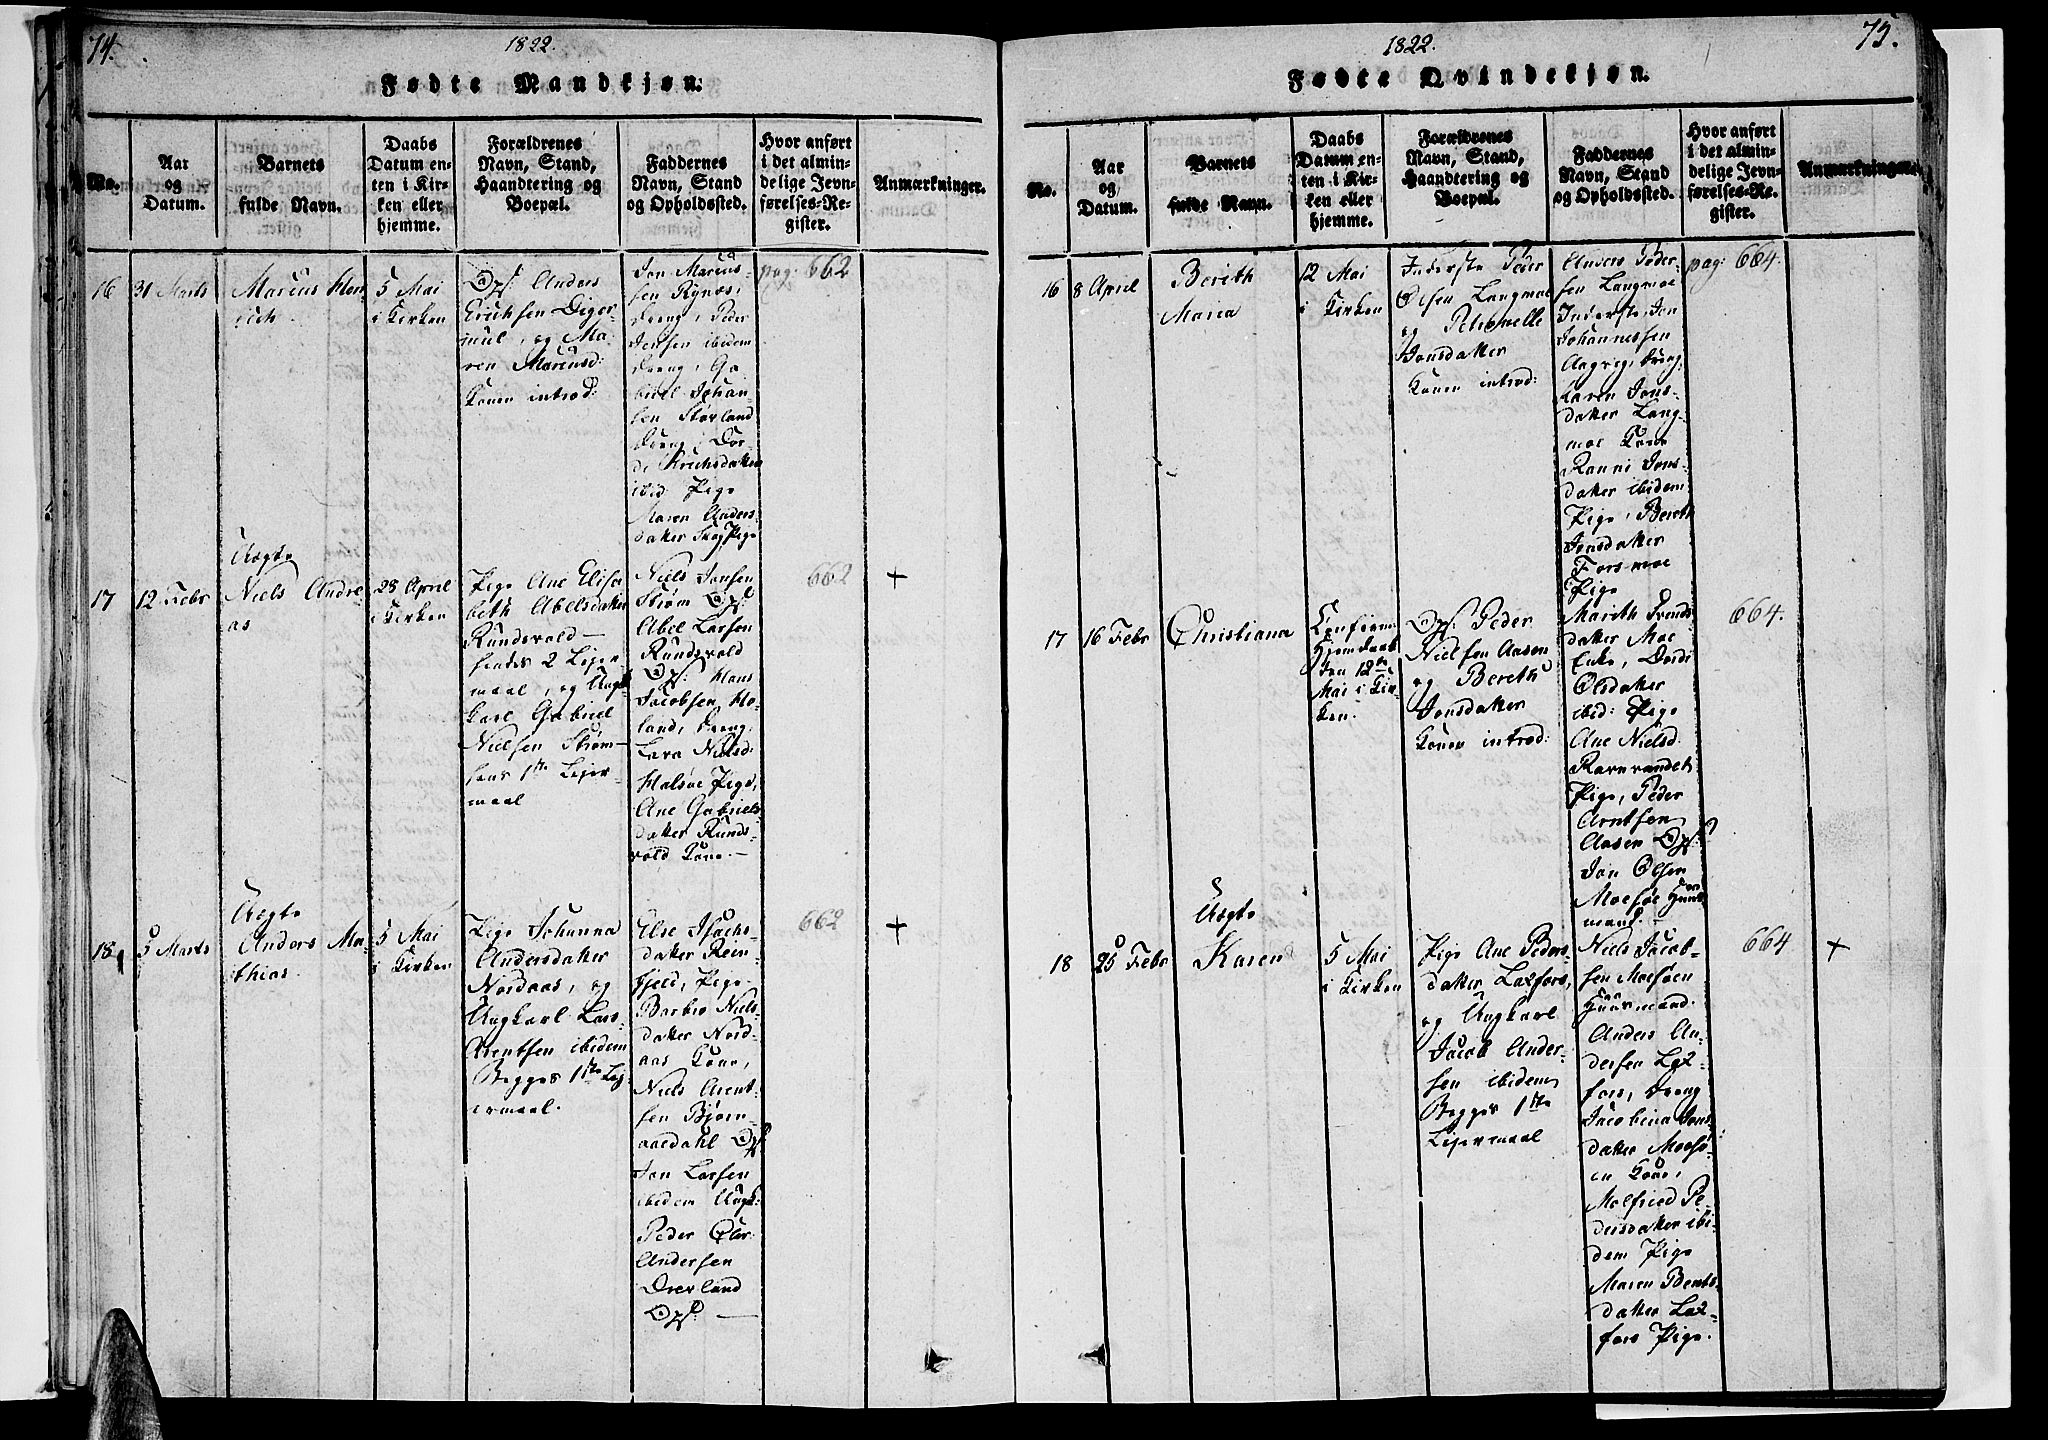 74.
1822.
Fødte Mandkjøn.
No.
Aar
og
Datum.
Barnets
fulde Navn.
Daabs
Datum en-
ten i Kir-
ken eller
hjemme.
Forældrenes
Navn, Stand,
Haandtering og
Boepæl.
Faddernes
Navn, Stand
og Opholdssted.
Hvor anført
i det almin-
delige Jevn-
førelses-Re-
gister.
Anmærkninger.
16
31 Marts
Marcus Hen-
rich
5 Mai
i Kirken
Ops: Anders
Erichsen Diger-
mul, og Ma-
ren Marcusd:
Konen introd:
Jon Marcus-
sen Rynæs,
Dreng, Peder
Jensen ibidem
Dreng, Ga-
briel Johan-
sen Størland
Dreng, Dor-
de Erichsdatter
ibid Pige
Maren Anders-
datter Skag Pige
pag: 662
17
12 Febr
Uægte
Niels Andre
as
28 April
i Kirken
Pige Ane Elisa
beth Abelsdatter
Rundsvold—
hendes 2 Leier-
maal, og Ung-
karl Gabriel
Nielsen Strøm—
hans 1ste Leier-
maal
Niels Jonsen
Strøm Ops:
Abel Larsen
Rundsvold
Ops: Hans
Jacobsen Ho-
land, Dreng,
Lava Nielsd:
Halsøe Pige,
Ane Gabriels
datter Runds-
vold Kone.—
662
+
18
5 Marts
Uægte
Anders Ma-
thias
5 Mai
i Kirken
Pige Johanna
Andersdatter
Nordaas, og
Ungkarl Lars
Arentsen ibidem
Begges 1ste Lei-
ermaal.
Else Isachs-
datter Rein-
fjeld, Pige
Barbro Niels-
datter Nord-
aas Kone,
Niels Arent-
sen Bjørn-
aaedahl Ops
Jon Larsen
ibidem Ungk:
Peder Olai
Andersen
Drevland
Ops: —
662
+
75.
1822.
Fødte Qvindekjøn.
No.
Aar
og
Datum.
Barnets
fulde Navn.
Daabs
Datum en-
ten i Kir-
ken eller
hjemme.
Forældrenes
Navn, Stand,
Haandtering og
Boepæl.
Faddernes
Navn, Stand
og Opholdssted.
Hvor anført
i det almin-
delige Jevn-
førelses-Re-
gister.
Anmærkninger.
16
8 April
Berith
Maria
12 Mai
i Kirken
Inderste Peder
Olsen Langmoe
og Petronelle
Jonsdatter
Konen introd:
Anders Peder-
sen Langmoe
Inderste, Jon
Johannessen
Aagvig, Dreng,
Karen Jons-
datter Lang-
moe Kone
Ranni Jons-
datter ibidem
Pige, Bereth
Jonsdatter
Forsmoe
Pige
pag: 664.
17
16 Febr
Christiana
Confirm:
Hjemdaab
den 12te
Mai i Kir-
ken.
Ops: Peder
Nielsen Aasen
og Bereth
Jonsdatter
Konen introd:
Marith Trends
datter Moe
Enke, Dordi
Olsdatter
ibid: Pige
Ane Nielsd:
Ravnvandet
Pige, Peder
Arntsen
Aasen Ops:
Jon Olsen
Moesøe Huus
mand.
664.
18
25 Febr
Uægte
Karen
5 Mai
i Kirken
Pige Ane Peders-
datter Laxfors,
og Ungkarl
Jacob Ander-
sen ibidem
Begges 1ste
Leiermaal
Niels Jacob-
sen Moesøen
Huusmand.
Anders An-
dersen Lax-
fors, Dreng
Jacobina Jons
datter Moesø-
en Kone,
Malfried Pe-
dersdatter ibi-
dem Pige
Maren Bents
datter Lax-
fors Pige.
664
+